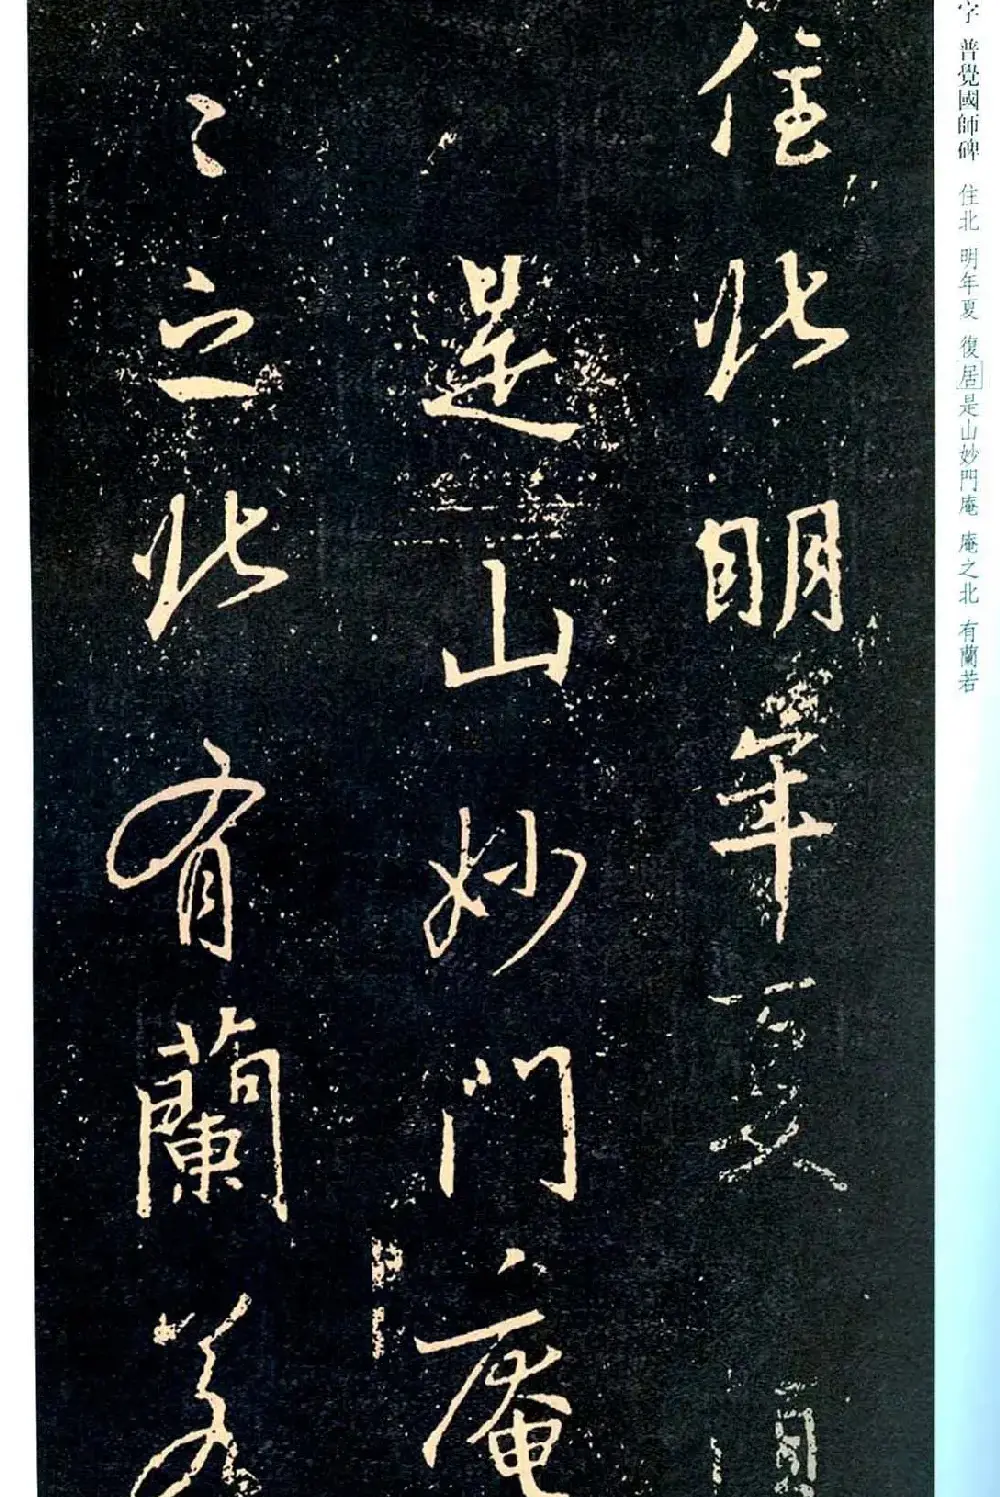 字 普覺國師碑 住北 明年夏 復居是山妙門庵 庵之北 有蘭若
住北明年夏復
是山妙門庵
〻之北有蘭若